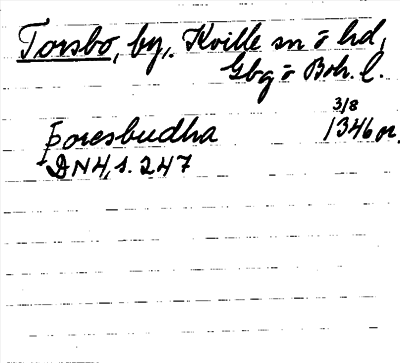 Torsbo, by, Kville sn o hd,
Gbg o Boh. l.
3/8
Þoresbudha 1346 or.
DN 4, s. 247